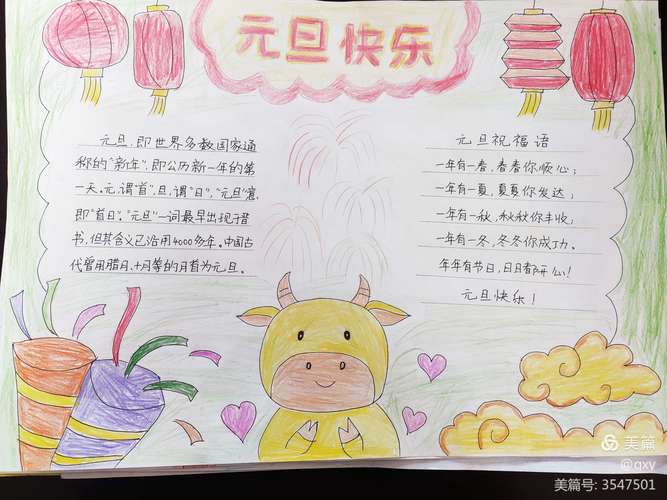 元旦快乐
元旦，即世界多数国家通
称的“新年”，即公历新一年的第
一天。元，谓“首”，旦，谓“日”，“元旦”意
即“首日”。“元旦”一词最早出现于晋
书，但其含义已沿用4000多年。中国古
代曾用腊月、十月等的月首为元旦。
元旦祝福语
一年有一春，春春你顺心；
一年有一夏，夏夏你发达；
一年有一秋，秋秋你丰收；
一年有一冬，冬冬你成功。
年年有节日，日日都开心！
元旦快乐！
美篇
@qxy
美篇号: 3547501